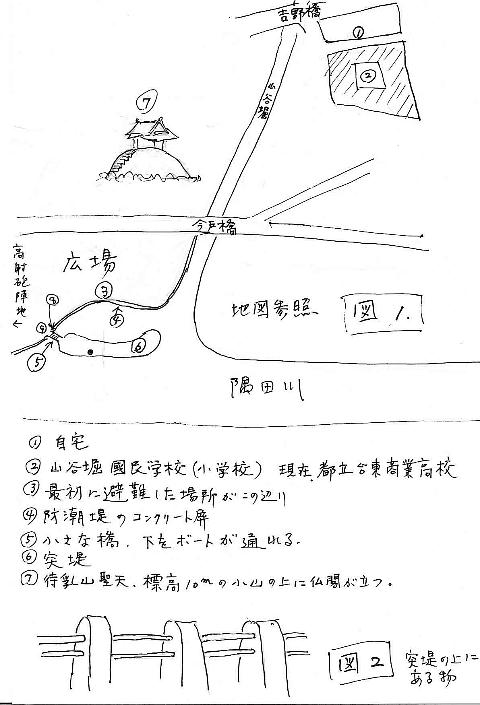 吉野橋
①
②
山谷堀
⑦
今戸橋
高射砲陣地
←
広場
③
④
④
⑤
⑥
地図参照
図1.
隅田川
① 自宅
② 山谷堀國民学校(小学校) 現在、都立台東商業高校
③ 最初に避難した場所がこの辺り
④ 防潮堤のコンクリート塀
⑤ 小さな橋、下をボートが通れる.
⑥ 突堤
⑦ 待乳山聖天、標高10mの小山の上に仏閣が立つ。
図2
突堤の上に
ある物